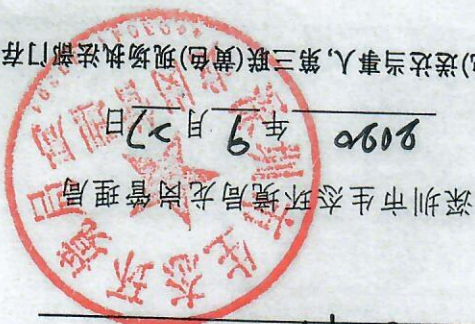 深圳市生态环境局龙岗管理局
2020 年 9 月 27 日
)送达当事人,第三联(黄色)现场执法部门存
深圳市生态环境局